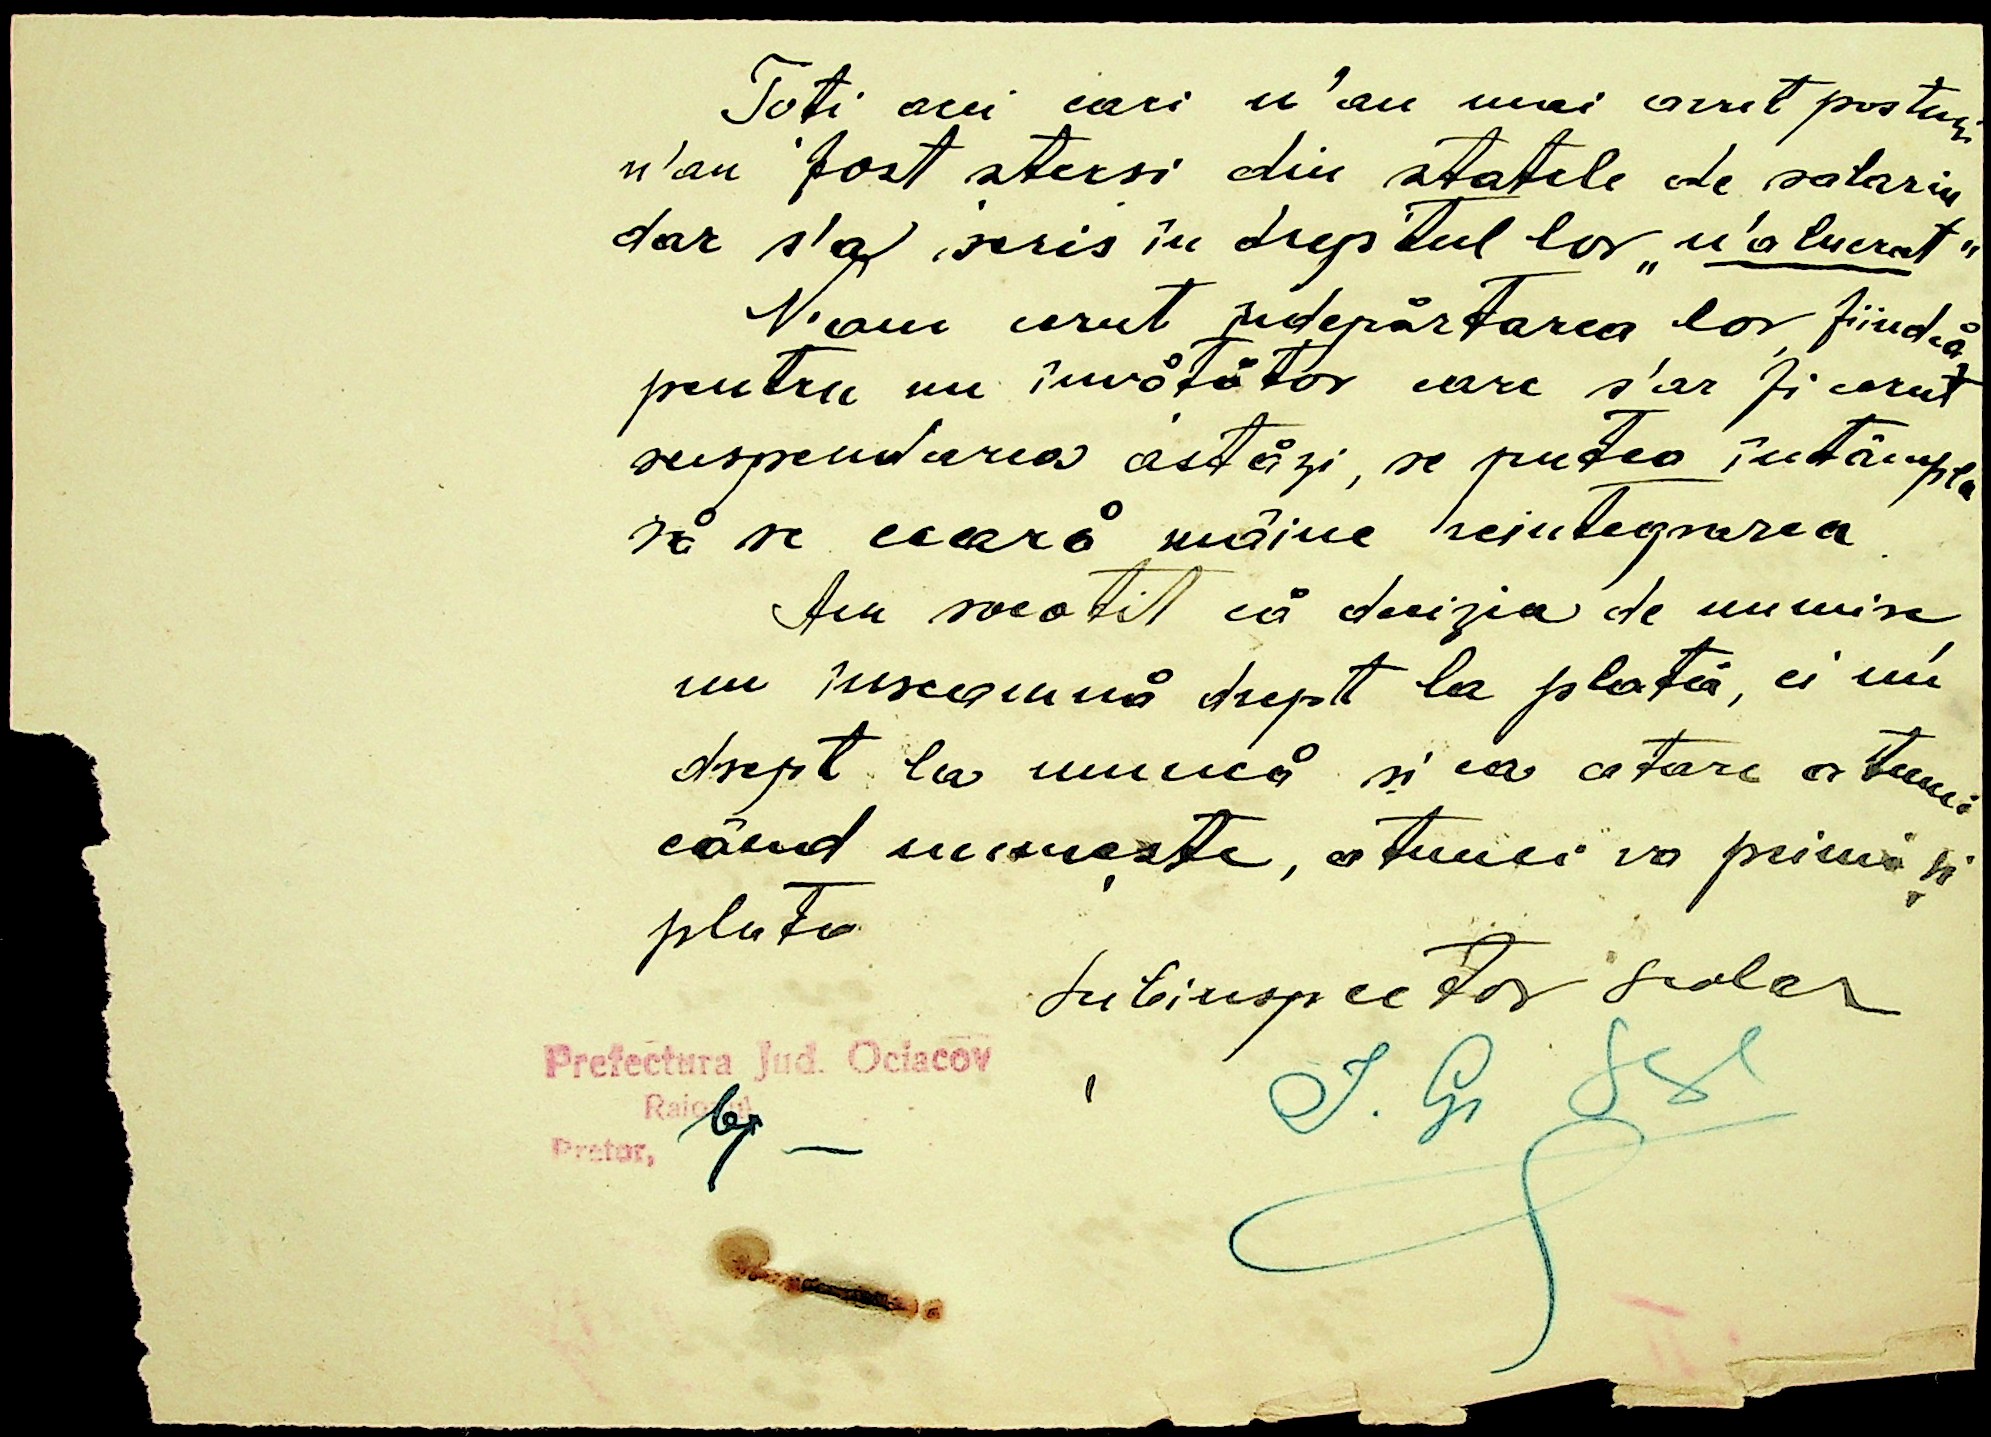 Toti acei cari n'au mai avut posturi
n'au fost stersi din statele de salariu
dar s'a scris în dreptul lor „n'a lucrat"
N'am cerut îndepårtarea lor, fiindcå
pentru un învåtåtor care s'ar fi cerut
suspendarea aståzi, se putea întâmpla
så se ceară mâine reintegrarea.
Am socotit cå decizia de numire
nu înseamnå drept la platå, ci nu
drept la muncå și ca atare atunci
când muncește, atunci va primi și
plata
Subinspector scolar
Prefectura Jud. Ociacov
Raionul
Pretor,
I. Gr